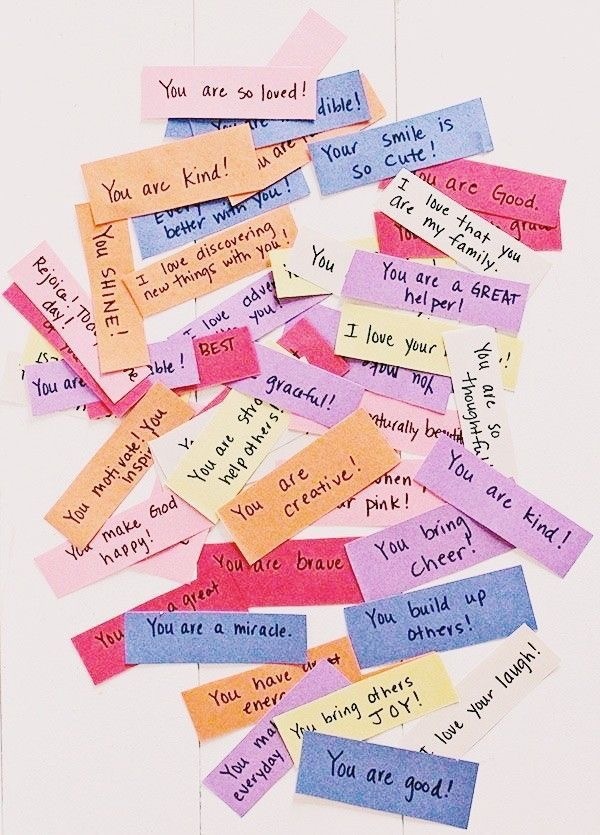 You are so loved!
You are
dible!
Your smile is
so cute!
You are kind!
are
better with you!
You are Good.
I love that you
are my family.
You SHINE!
I love discovering
new things with you!
You
You are a GREAT
helper!
Rejoice!
day!
I love
you!
I love your
You are
ble!
BEST
graceful!
You
You are so
thoughtful
naturally
You motivate! You
You are
help others!
You are
creative!
when
pink!
You are kind!
You make God
happy!
You bring
cheer!
You are brave
a great
You
You are a miracle.
You build up
others!
You have
You bring others
JOY!
I love your laugh!
You
everyday
You are good!